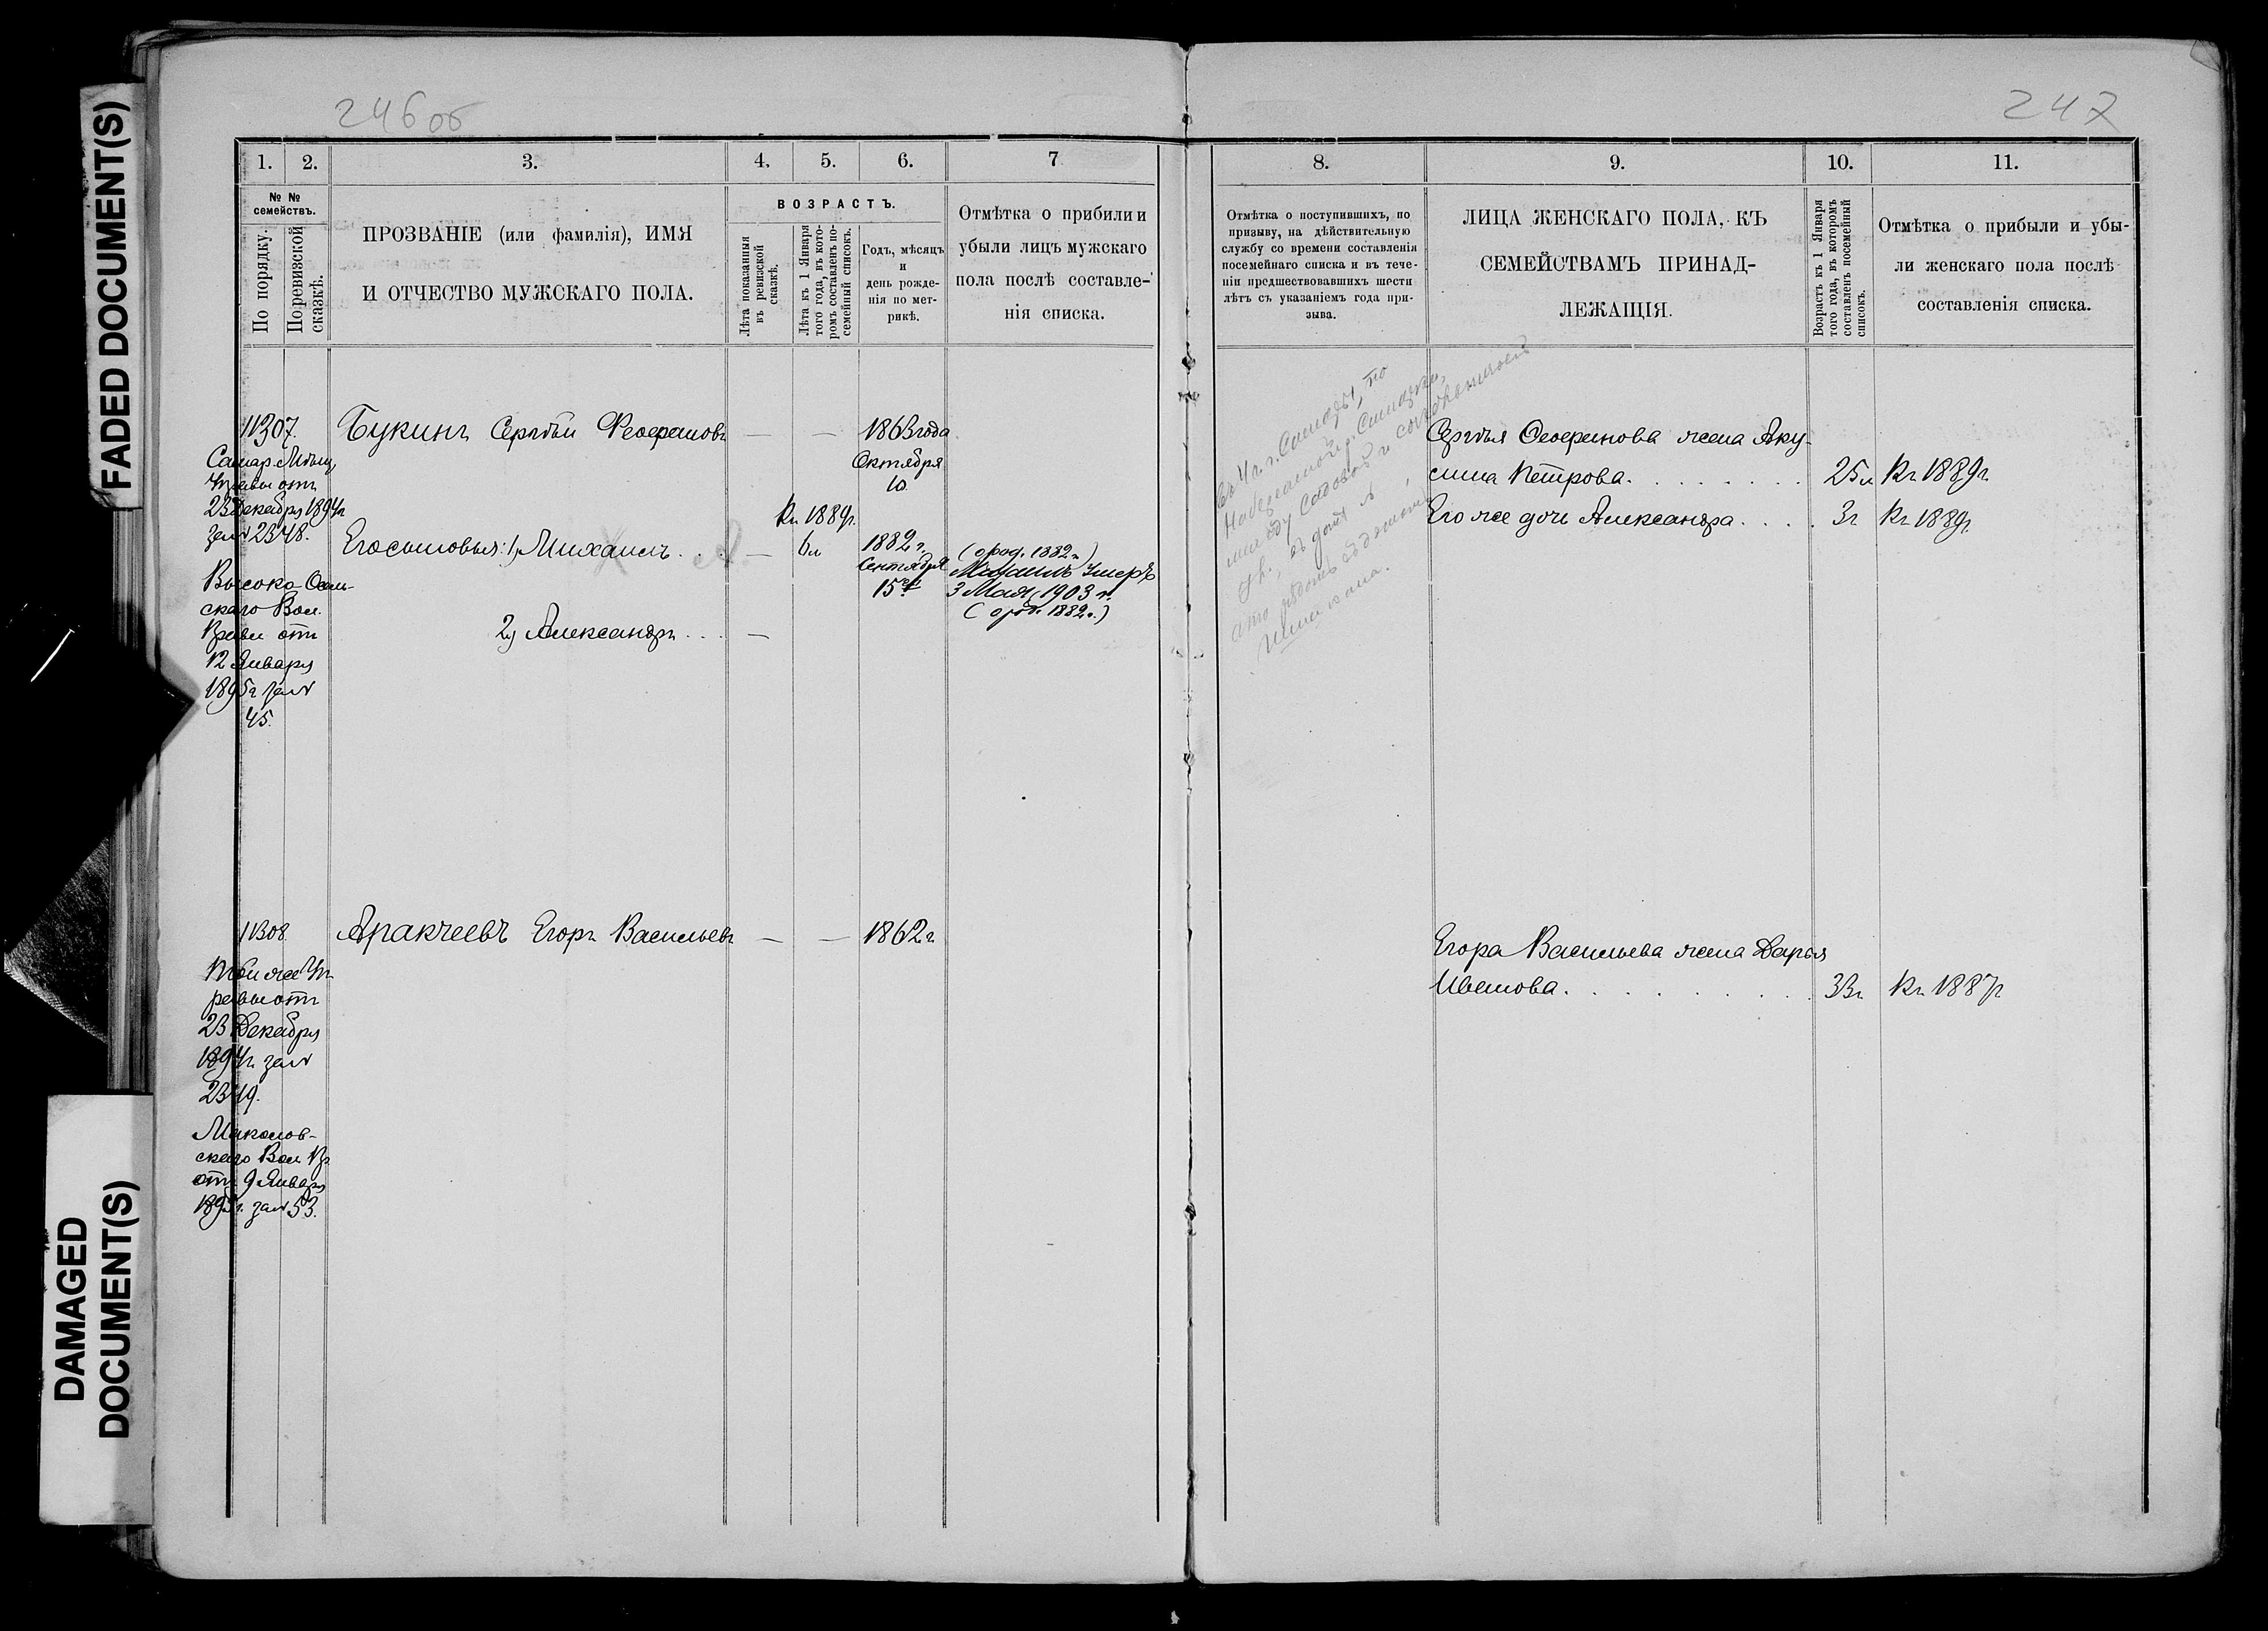 FADED DOCUMENT(S)
DAMAGED
DOCUMENT(S)
246об
1. 2. 3. 4. 5. 6. 7
№ №
семействъ.
По порядку.
По ревизской
сказкѣ.
ПРОЗВАНІЕ (или фамилія), ИМЯ
И ОТЧЕСТВО МУЖСКАГО ПОЛА.
ВОЗРАСТЪ.
Лѣта показанныя
въ ревизской
сказкѣ.
Лѣта къ 1 Января
того года, въ кото-
ромъ составленъ по-
семейный списокъ.
Годъ, мѣсяцъ
и
день рожде-
нія по мет-
рикѣ.
Отмѣтка о прибыли и
убыли лицъ мужскаго
пола послѣ составле-
нія списка.
11307.
Самар. Мѣщ.
Управы отъ
23 Декабря 1894г
за № 2348.
Высоко
скаго Вол.
Правл отъ
12 Января
1895г за №
45.
Букинъ Сергѣй — — 1863 года
Октября
10.
Къ 1889г.
Его сыновья: 1) Михаилъ — 6л 1882 г.
Сентября
15го
(о род. 1882 г.)
Михаилъ Умеръ
3 Мая 1903 г.
2) Александръ —
11308
Той же Уп
равы отъ
23 Декабря
1894г. за №
2349.
скаго Вол Пр
отъ 9 Января
1895г. за № 53.
Аракчеевъ Егоръ Васильевъ — — 1862 г.
247
8. 9. 10. 11.
Отмѣтка о поступившихъ, по
призыву, на дѣйствительную
службу со времени составленія
посемейнаго списка и въ тече-
ніи предшествовавшихъ шести
лѣтъ съ указаніемъ года при-
зыва.
ЛИЦА ЖЕНСКАГО ПОЛА, КЪ
СЕМЕЙСТВАМЪ ПРИНАД-
ЛЕЖАЩІЯ.
Возрастъ къ 1 Января
того года, въ которомъ
составленъ посемейный
списокъ.
Отмѣтка о прибыли и убы-
ли женскаго пола послѣ
составленія списка.
Сергѣя жена Аку-
лина Петрова. 25л Къ 1889г
Его же дочь Александра 3г Къ 1889г.
Егора Васильева жена Дарья
Иванова. 33г Къ 1887г